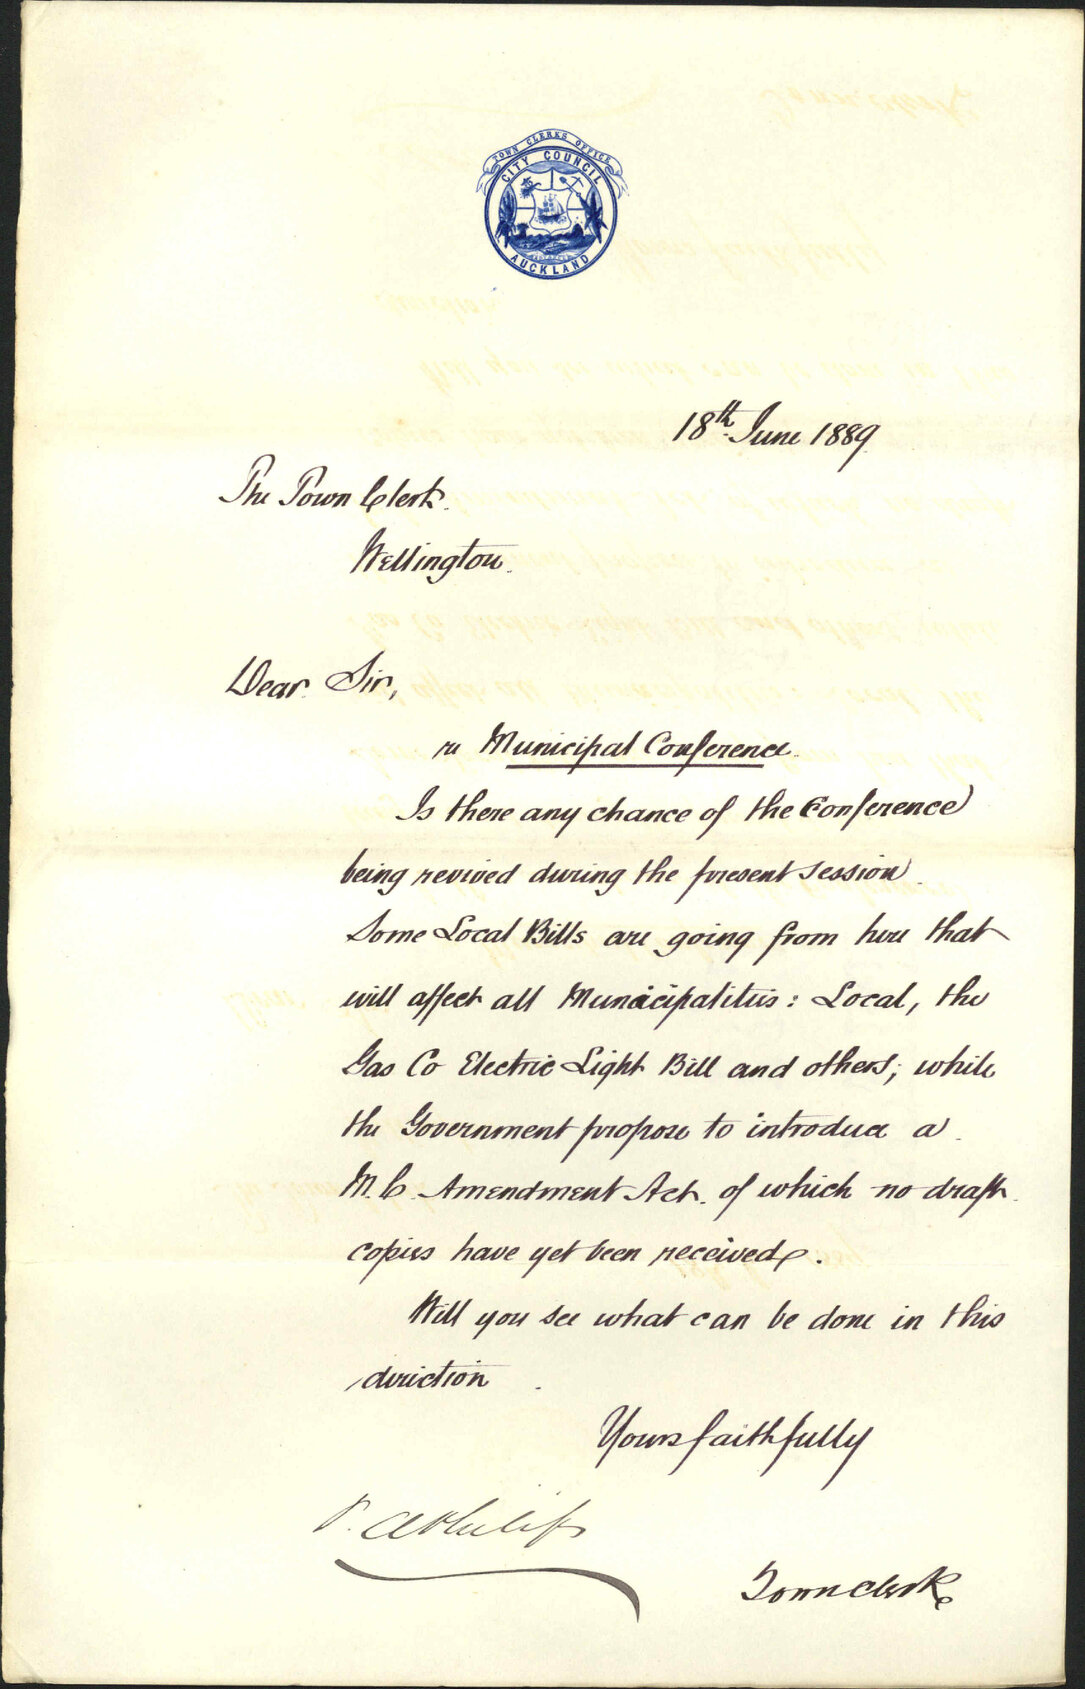 TOWN CLERKS OFFICE
CITY COUNCIL
AUCKLAND
18th June 1889
The Town Clerk.
Wellington.
Dear Sir,
re Municipal Conference.
Is there any chance of the Conference
being revived during the present session.
Some Local Bills are going from here that
will affect all Municipalities: Local, the
Gas Co Electric Light Bill and others; while
the Government propose to introduce a
M.C. Amendment Act. of which no draft
copies have yet been received.
Will you see what can be done in this
direction.
Yours faithfully
P. A Philips
Town Clerk